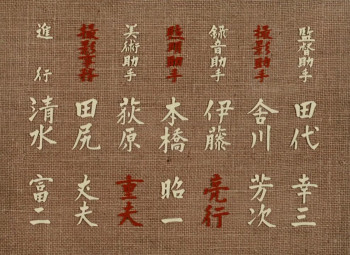 監督助手 田代幸三
撮影助手 舎川芳次
録音助手 伊藤亮行
照明助手 本橋昭一
美術助手 荻原重夫
撮影事務 田尻丈夫
進行 清水富二